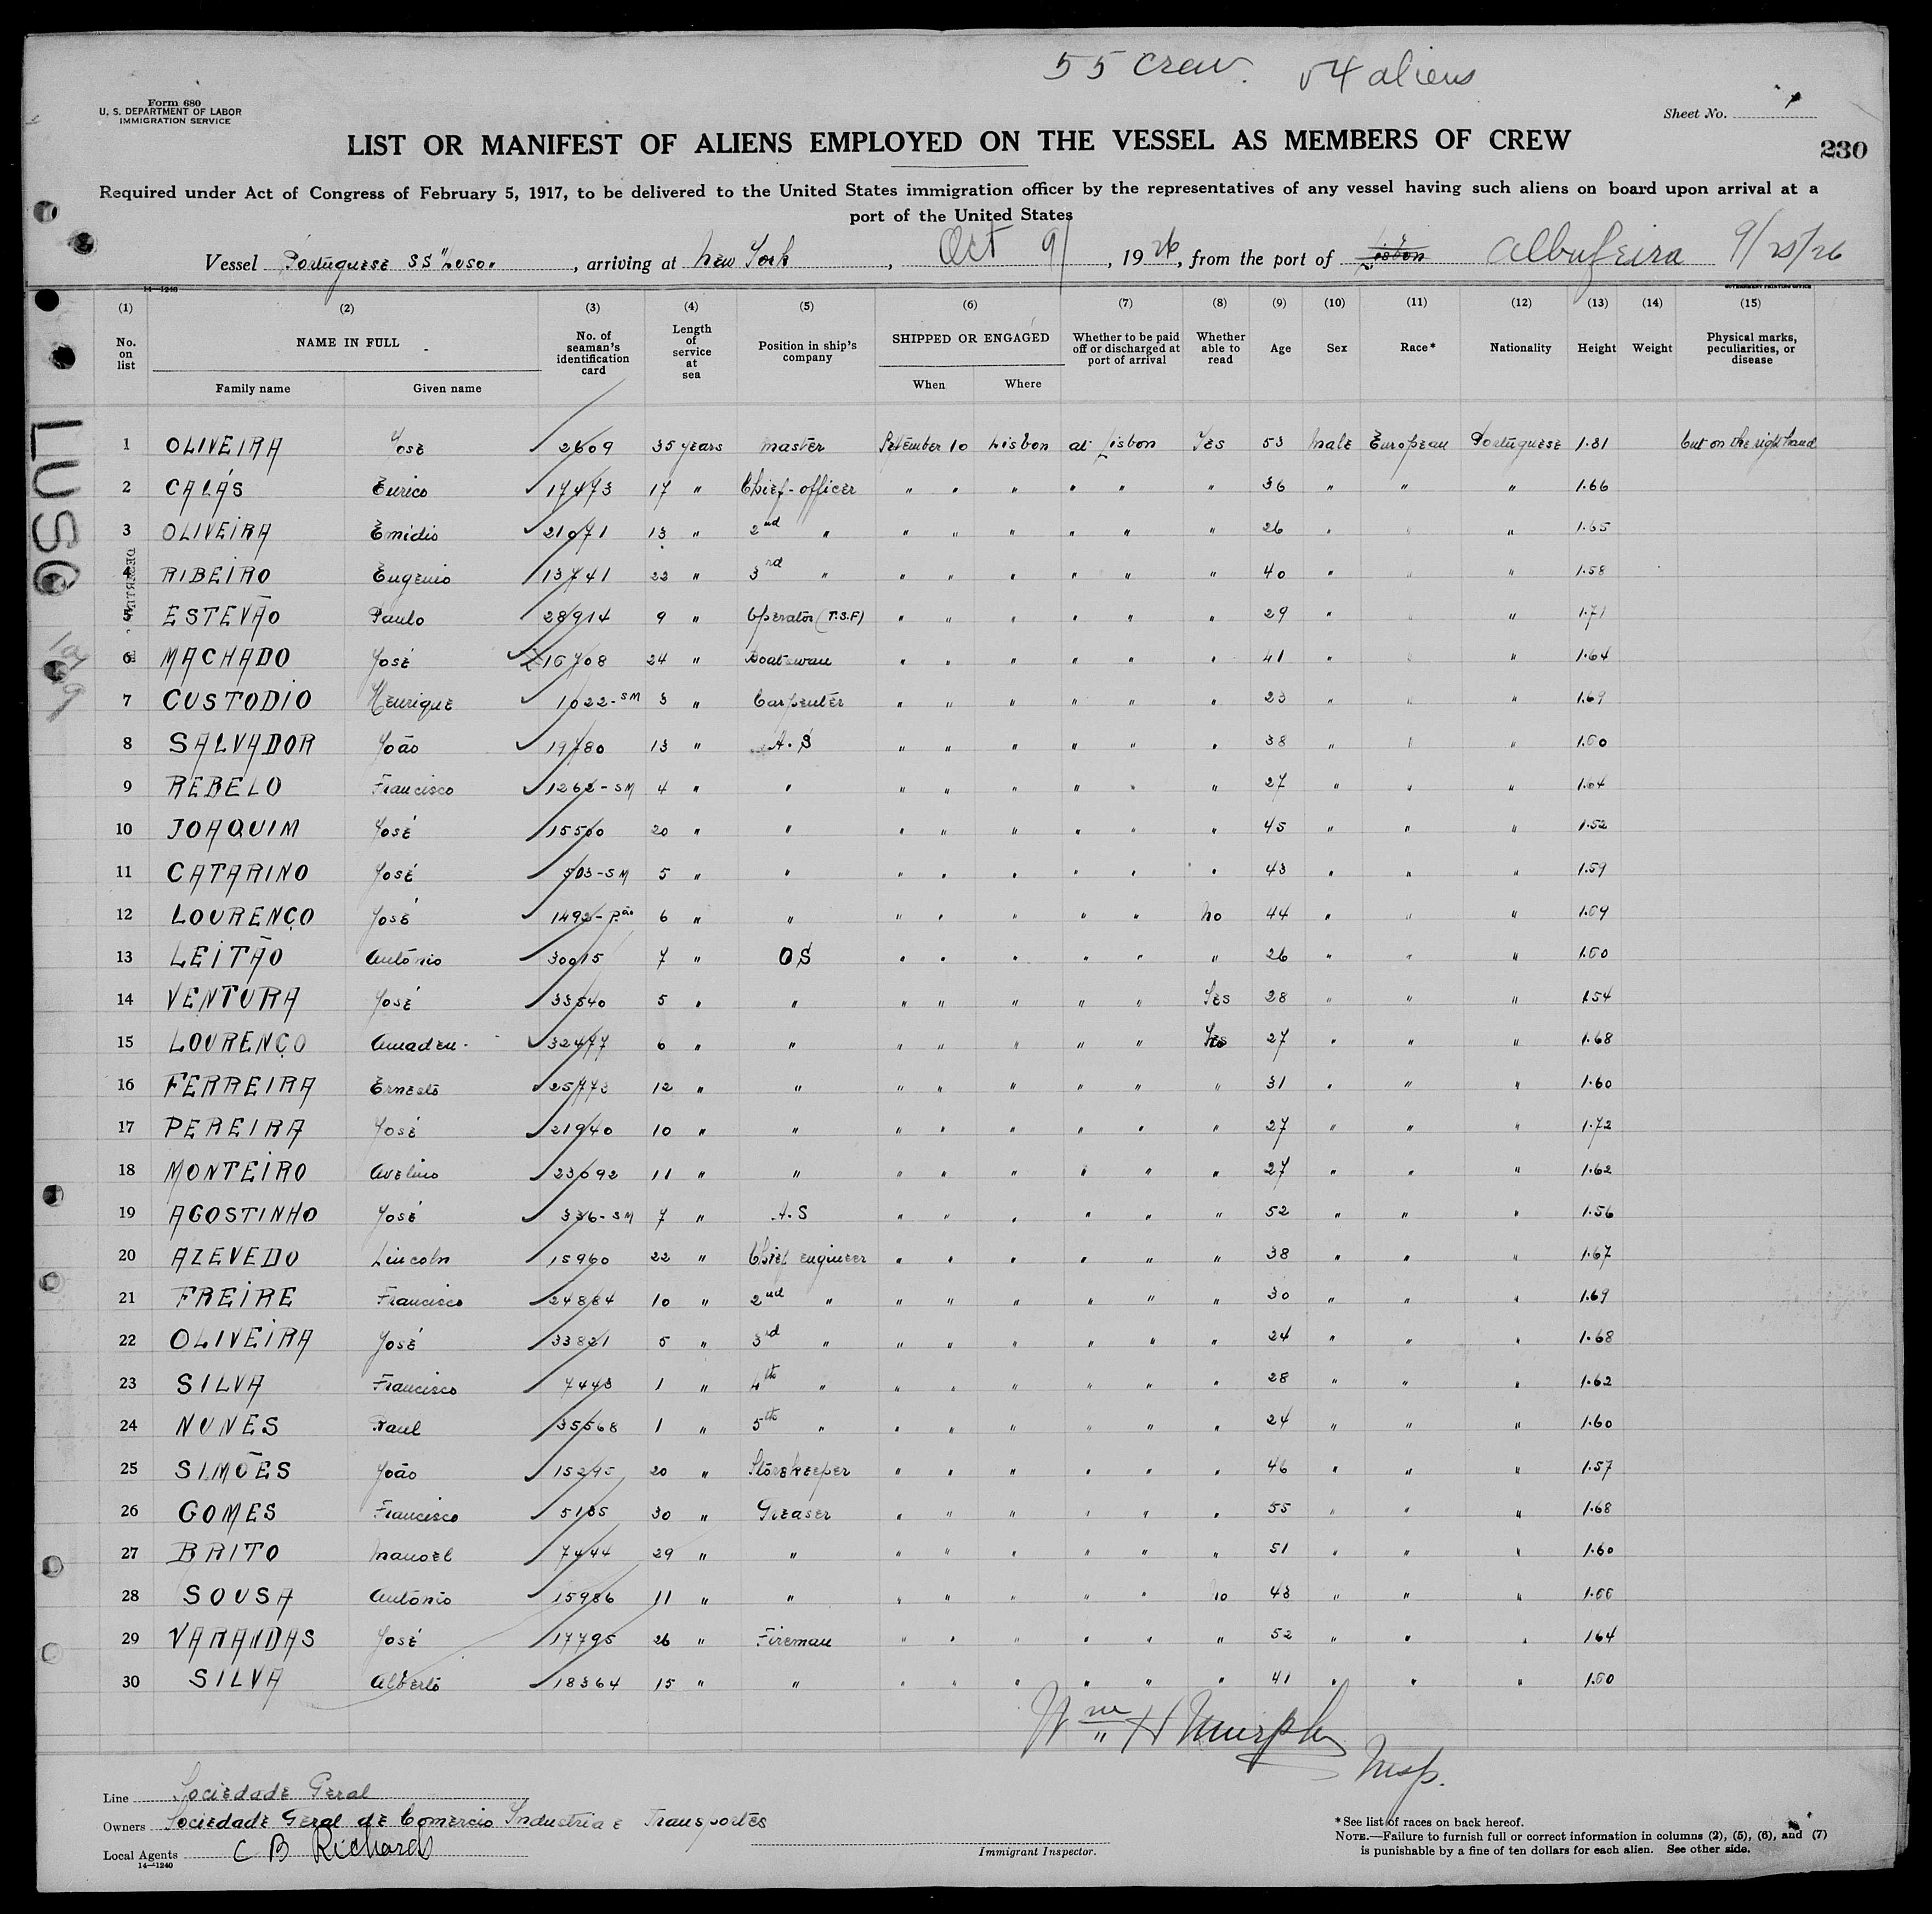 55 crew. 54 aliens
Form 680
U. S. DEPARTMENT OF LABOR
IMMIGRATION SERVICE
Sheet No. 1
LIST OR MANIFEST OF ALIENS EMPLOYED ON THE VESSEL AS MEMBERS OF CREW
230
Required under Act of Congress of February 5, 1917, to be delivered to the United States immigration officer by the representatives of any vessel having such aliens on board upon arrival at a
port of the United States
Vessel Portuguese SS "Luso", arriving at New York, Oct 9/, 1926, from the port of Lisbon Albufeira 9/25/26
14—1240 GOVERNMENT PRINTING OFFICE
(1) (2) (3) (4) (5) (6) (7) (8) (9) (10) (11) (12) (13) (14) (15)
No. on list NAME IN FULL Family name Given name No. of seaman's identification card Length of service at sea Position in ship's company SHIPPED OR ENGAGED When Where Whether to be paid off or discharged at port of arrival Whether able to read Age Sex Race* Nationality Height Weight Physical marks, peculiarities, or disease
LUSO
1 OLIVEIRA José 2609 35 years master September 10 Lisbon at Lisbon Yes 53 male European Portuguese 1.81 cut on the right hand
2 CALÁS Eurico 17473 17 " Chief-officer " " " " " " 36 " " " 1.66
3 OLIVEIRA Emidio 21071 13 " 2nd " " " " " " " 26 " " " 1.65
4 RIBEIRO Eugenio 13741 22 " 3rd " " " " " " " 40 " " " 1.58
5 ESTEVÃO Paulo 28914 9 " Operator (T.S.F) " " " " " " 29 " " " 1.71
6 MACHADO José 16708 24 " Boatswan " " " " " " 41 " " " 1.64
7 CUSTODIO Henrique 1022-SM 3 " Carpenter " " " " " " 23 " " " 1.69
8 SALVADOR João 19780 13 " A.S " " " " " " 38 " " " 1.60
9 REBELO Francisco 1262-SM 4 " " " " " " " " 27 " " " 1.64
10 JOAQUIM José 15500 20 " " " " " " " " 45 " " " 1.52
11 CATARINO José 503-SM 5 " " " " " " " " 43 " " " 1.59
12 LOURENÇO José 1492-P.ão 6 " " " " " " " no 44 " " " 1.69
13 LEITÃO António 30015 7 " OS " " " " " " 26 " " " 1.60
14 VENTURA José 33540 5 " " " " " " " Yes 28 " " " 1.54
15 LOURENÇO Amadeu 32477 6 " " " " " " " 27 " " " 1.68
16 FERREIRA Ernesto 25773 12 " " " " " " " " 31 " " " 1.60
17 PEREIRA José 21940 10 " " " " " " " " 27 " " " 1.72
18 MONTEIRO Avelino 23092 11 " " " " " " " " 27 " " " 1.62
19 AGOSTINHO José 336-SM 7 " A.S " " " " " " 52 " " " 1.56
20 AZEVEDO Lincoln 15960 22 " Chief engineer " " " " " " 38 " " " 1.67
21 FREIRE Francisco 24884 10 " 2nd " " " " " " " 30 " " " 1.69
22 OLIVEIRA José 33821 5 " 3rd " " " " " " " 24 " " " 1.68
23 SILVA Francisco 7443 1 " 4th " " " " " " " 28 " " " 1.62
24 NUNES Raul 35568 1 " 5th " " " " " " " 24 " " " 1.60
25 SIMÕES João 15295 20 " Storekeeper " " " " " " 46 " " " 1.57
26 GOMES Francisco 5185 30 " Greaser " " " " " " 55 " " " 1.68
27 BRITO Manoel 7444 29 " " " " " " " " 51 " " " 1.60
28 SOUSA António 15986 11 " " " " " " " no 43 " " " 1.66
29 VARANDAS José 17795 26 " Fireman " " " " " " 52 " " " 164
30 SILVA Alberto 18364 15 " " " " " " " " 41 " " " 1.60
Wm H Murphy
Insp.
Line Sociedade Geral
Owners Sociedade Geral de Comercio Industria e Transportes
Local Agents C B Richards
14—1240
Immigrant Inspector.
*See list of races on back hereof.
NOTE.—Failure to furnish full or correct information in columns (2), (5), (6), and (7)
is punishable by a fine of ten dollars for each alien. See other side.